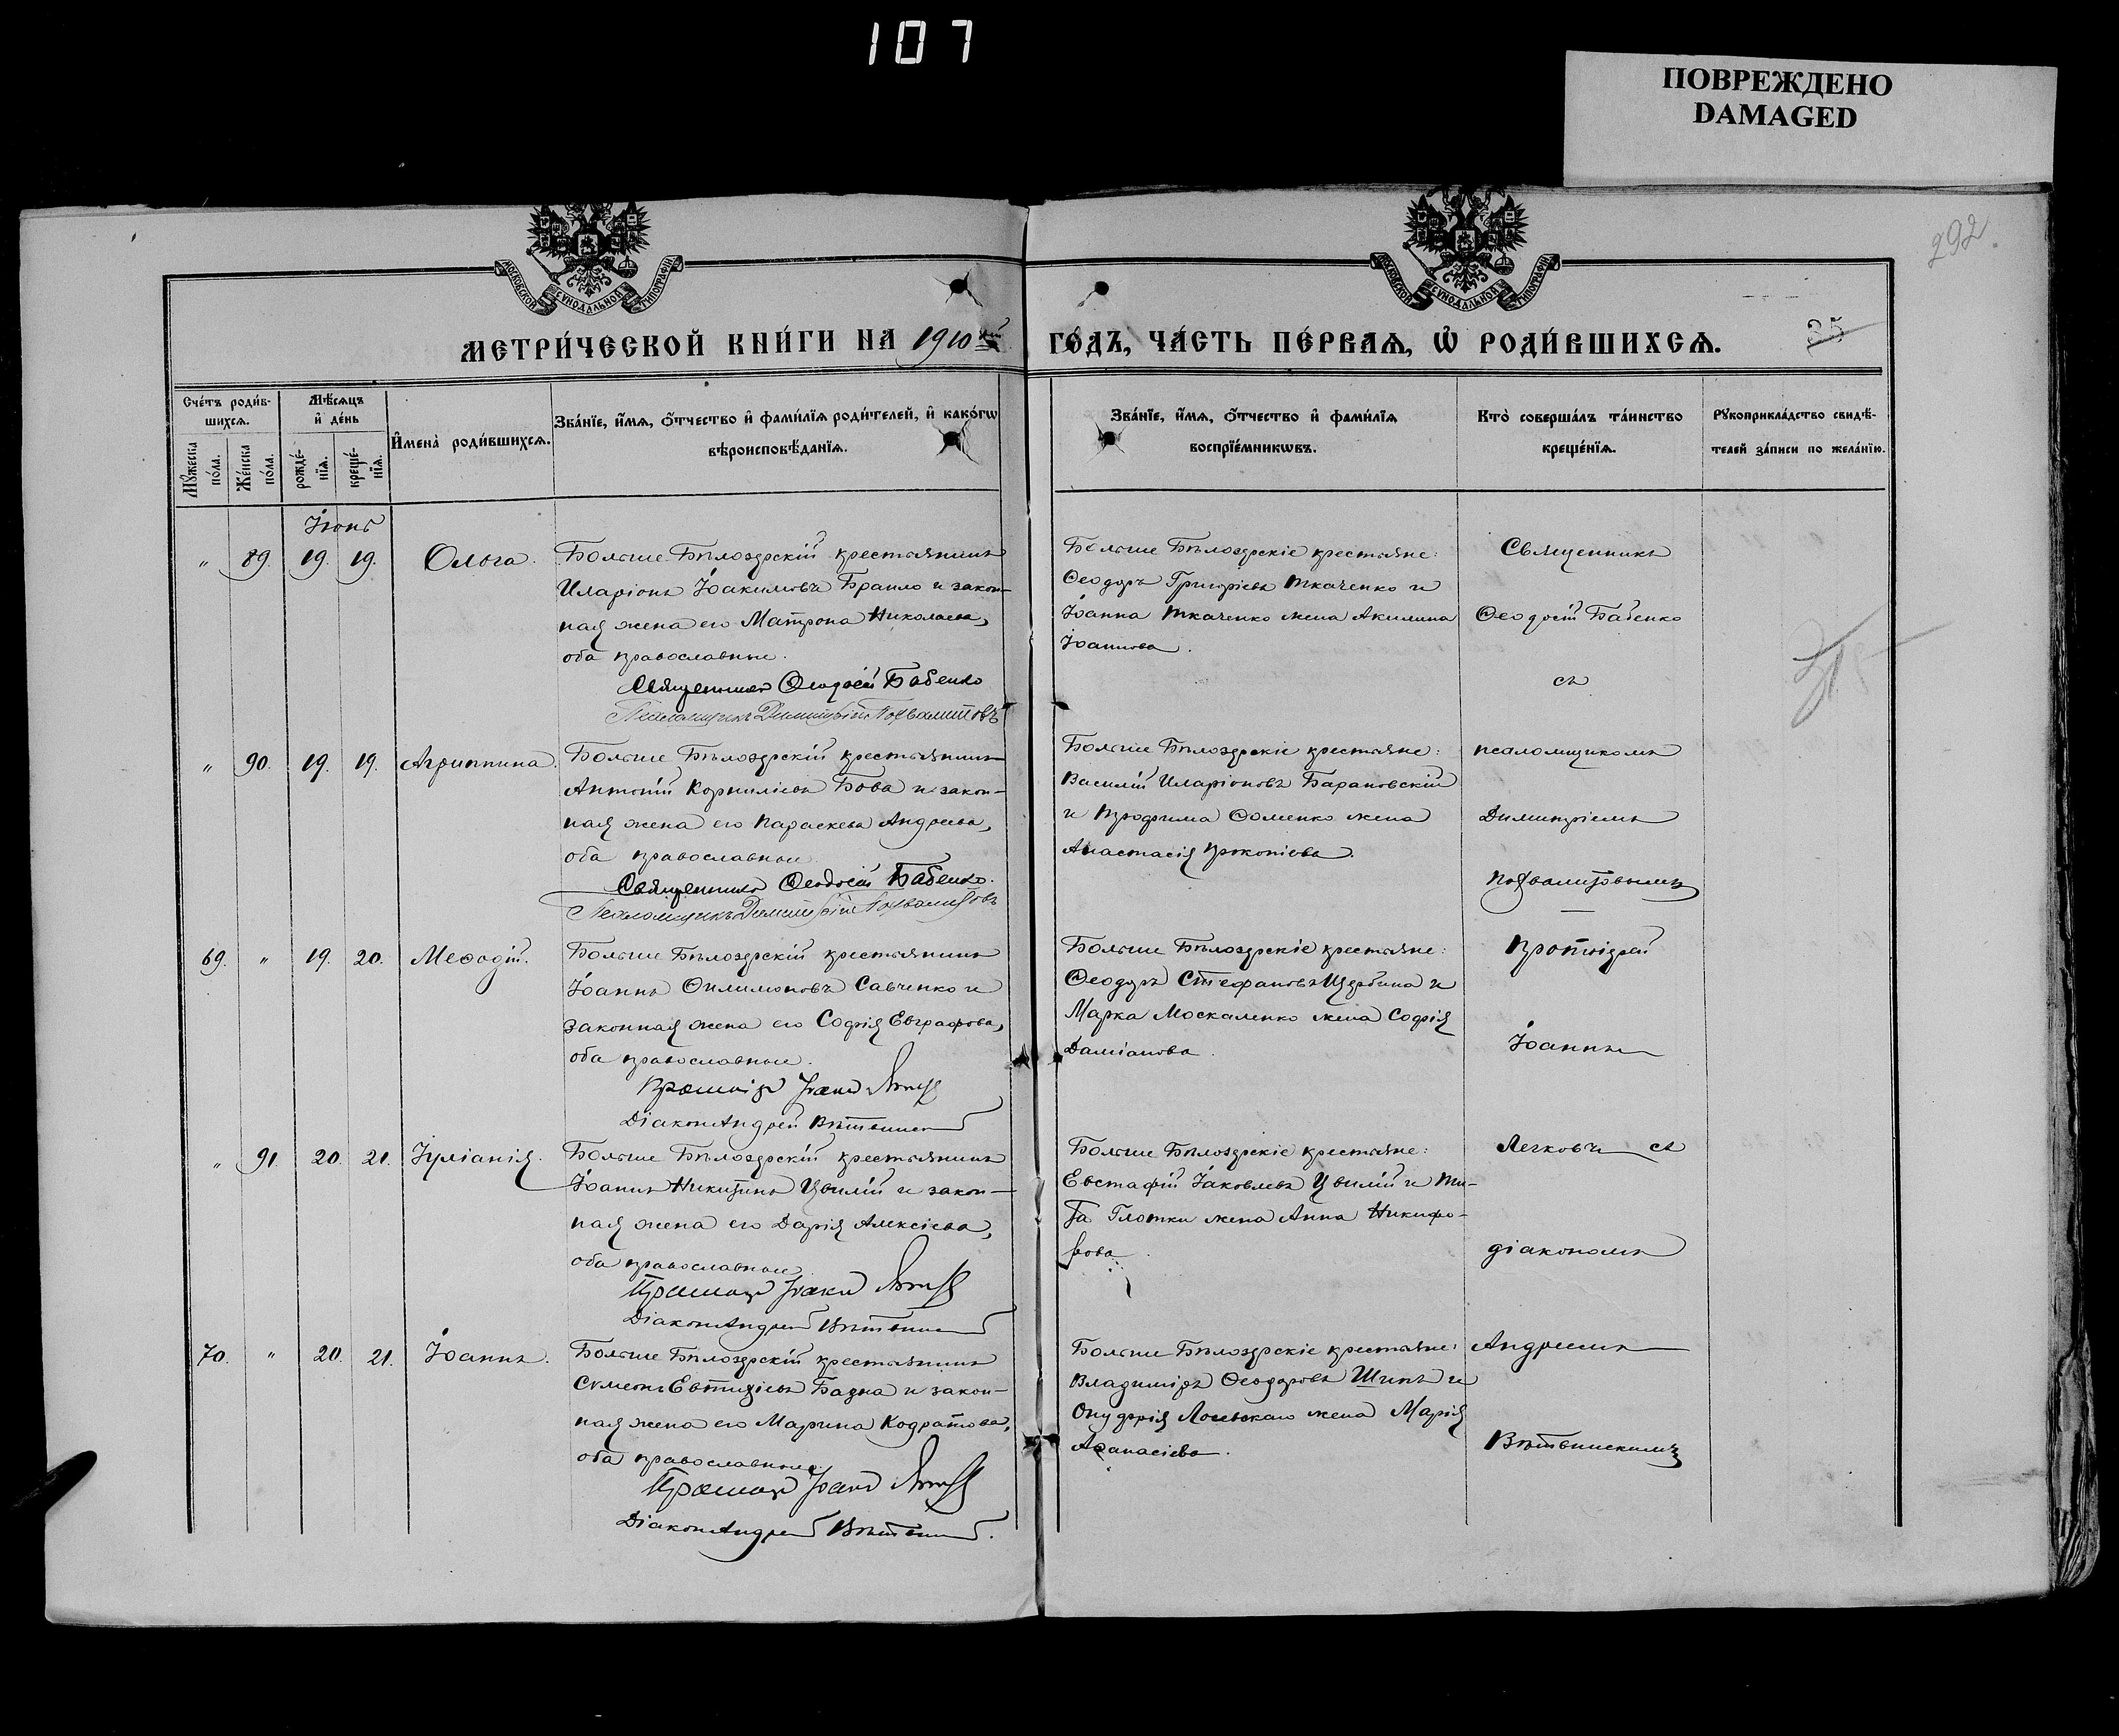 107
ПОВРЕЖДЕНО
DAMAGED
292.
МОСКОВСКОЙ СѴНОДАЛЬНОЙ ТИПОГРАФІИ
МОСКОВСКОЙ СѴНОДАЛЬНОЙ ТИПОГРАФІИ
МЕТРИ́ЧЕСКОЙ КНИ́ГИ НА 1910ый ГО́ДЪ, ЧА́СТЬ ПЕ́РВАѦ, Ѡ҆ РОДИ́ВШИХСѦ.
35
Сче́тъ роди́в-
шихсѧ.
Мꙋ́жеска
по́ла.
Же́нска
по́ла.
Мѣ́сѧцъ
и҆ де́нь
рожде́-
нїѧ.
креще́-
нїѧ.
И҆мена̀ роди́вшихсѧ.
Зва́нїе, и҆́мѧ, ѻ҆́тчество и҆ фами́лїѧ роди́телей, и҆ како́гѡ
вѣроисповѣ́данїѧ.
Зва́нїе, и҆́мѧ, ѻ҆́тчество и҆ фами́лїѧ
воспрїе́мникѡвъ.
Кто̀ соверша́лъ та́инство
креще́нїѧ.
Рꙋкоприкла́дство свидѣ́-
телей за́писи по жела́нїю.
Іюнь
" 89. 19. 19. Ольга.
Больше Бѣлозерскій крестьянинъ
Иларіонъ Іоакимовъ Браило и закон-
ная жена его Матрона Николаева,
оба православные.
Священникъ Ѳеодосій Бабенко
Псаломщикъ Димитрій Похвалитовъ
Больше Бѣлозерскіе крестьяне:
Ѳеодоръ Григоріевъ Ткаченко и
Іоанна Ткаченко жена Акилина
Іоаннова.
Священникъ
Ѳеодосій Бабенко
съ
" 90. 19. 19. Агриппина.
Больше Бѣлозерскій крестьянинъ
Антоній Корниліевъ Бова и закон-
ная жена его Параскева Андреева,
оба православные.
Священникъ Ѳеодосій Бабенко.
Псаломщикъ Димитрій Похвалитовъ
Больше Бѣлозерскіе крестьяне:
Василій Иларіоновъ Барановскій
и Трофима Ѳоменко жена
Анастасія Прокопіева.
псаломщикомъ
Димитріемъ
Похвалитовымъ
69. " 19. 20. Меѳодій.
Больше Бѣлозерскій крестьянинъ
Іоаннъ Филимоновъ Савченко и
законная жена его Софія Евграфова,
оба православные.
Протоіер Іоаннъ
Діаконъ Андрей Вѣтвинскій
Больше Бѣлозерскіе крестьяне:
Ѳеодоръ Стефановъ Щербина и
Марка Москаленко жена Софія
Даміанова.
Протоіерей
Іоаннъ
" 91. 20. 21. Іуліанія.
Больше Бѣлозерскій крестьянинъ
Іоаннъ Никитинъ Цвилій и закон-
ная жена его Дарія Алексіева,
оба православные
Протоіер Іоаннъ
Діаконъ Андрей Вѣтвинскій
Больше Бѣлозерскіе крестьяне:
Евстафій Іаковлевъ Цвилій и Ти-
та Глотки жена Анна Никифо-
рова.
Легковъ съ
діакономъ
70. " 20. 21. Іоаннъ.
Больше Бѣлозерскій крестьянинъ
Сѵмеонъ Евтихіевъ Бадна и закон-
ная жена его Марина Кодратова,
оба православные.
Протоіер Іоаннъ
Діаконъ Андрей Вѣтвинскій.
Больше Бѣлозерскіе крестьяне:
Владиміръ Ѳеодоровъ Шинъ и
Онуфрія жена Марія
Аѳанасіева.
Андреемъ
Вѣтвинскимъ